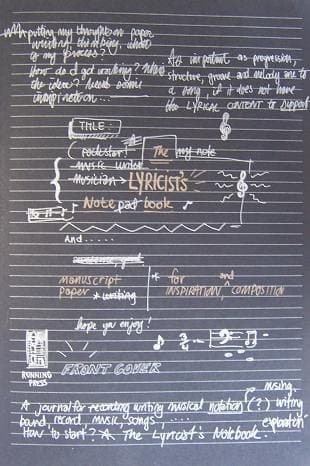 putting my thoughts on paper
writing, thinking, what
is my process?
How do I get writing?
the ideas? Need some
inspiration...
As important as progression,
structure, groove and melody are to
a song, if it does not have
the LYRICAL CONTENT to support
TITLE:
rockstar! The my note
music writer
musician LYRICIST'S
Note pad book
And.....
manuscript
paper * writing
* for and
INSPIRATION, COMPOSITION
hope you enjoy!
3/4
RUNNING
PRESS
FRONT COVER
musing,
A journal for recording writing musical notation (?) writing
band, record, music, songs ..... exploration
How to start? A The Lyricist's Notebook.